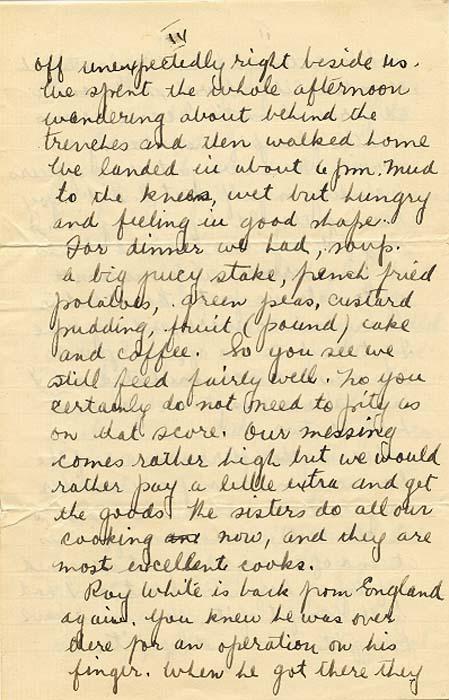 IV
off unexpectedly right beside us.
We spent the whole afternoon
wandering about behind the
trenches and then walked home
We landed in about 6 pm. Mud
to the knees, wet but hungry
and feeling in good shape.
For dinner we had, soup.
a big jucy stake, french fried
potatoes, green peas, custard
pudding, fruit (pound) cake
and coffee. So you see we
still feed fairly well. No you
certainly do not need to pity us
on that score. Our messing
comes rather high but we would
rather pay a little extra and get
the goods. The sisters do all our
cooking are now, and they are
most excellent cooks.
Roy White is back from England
again. You knew he was over
there for an operation on his
finger. When he got there they